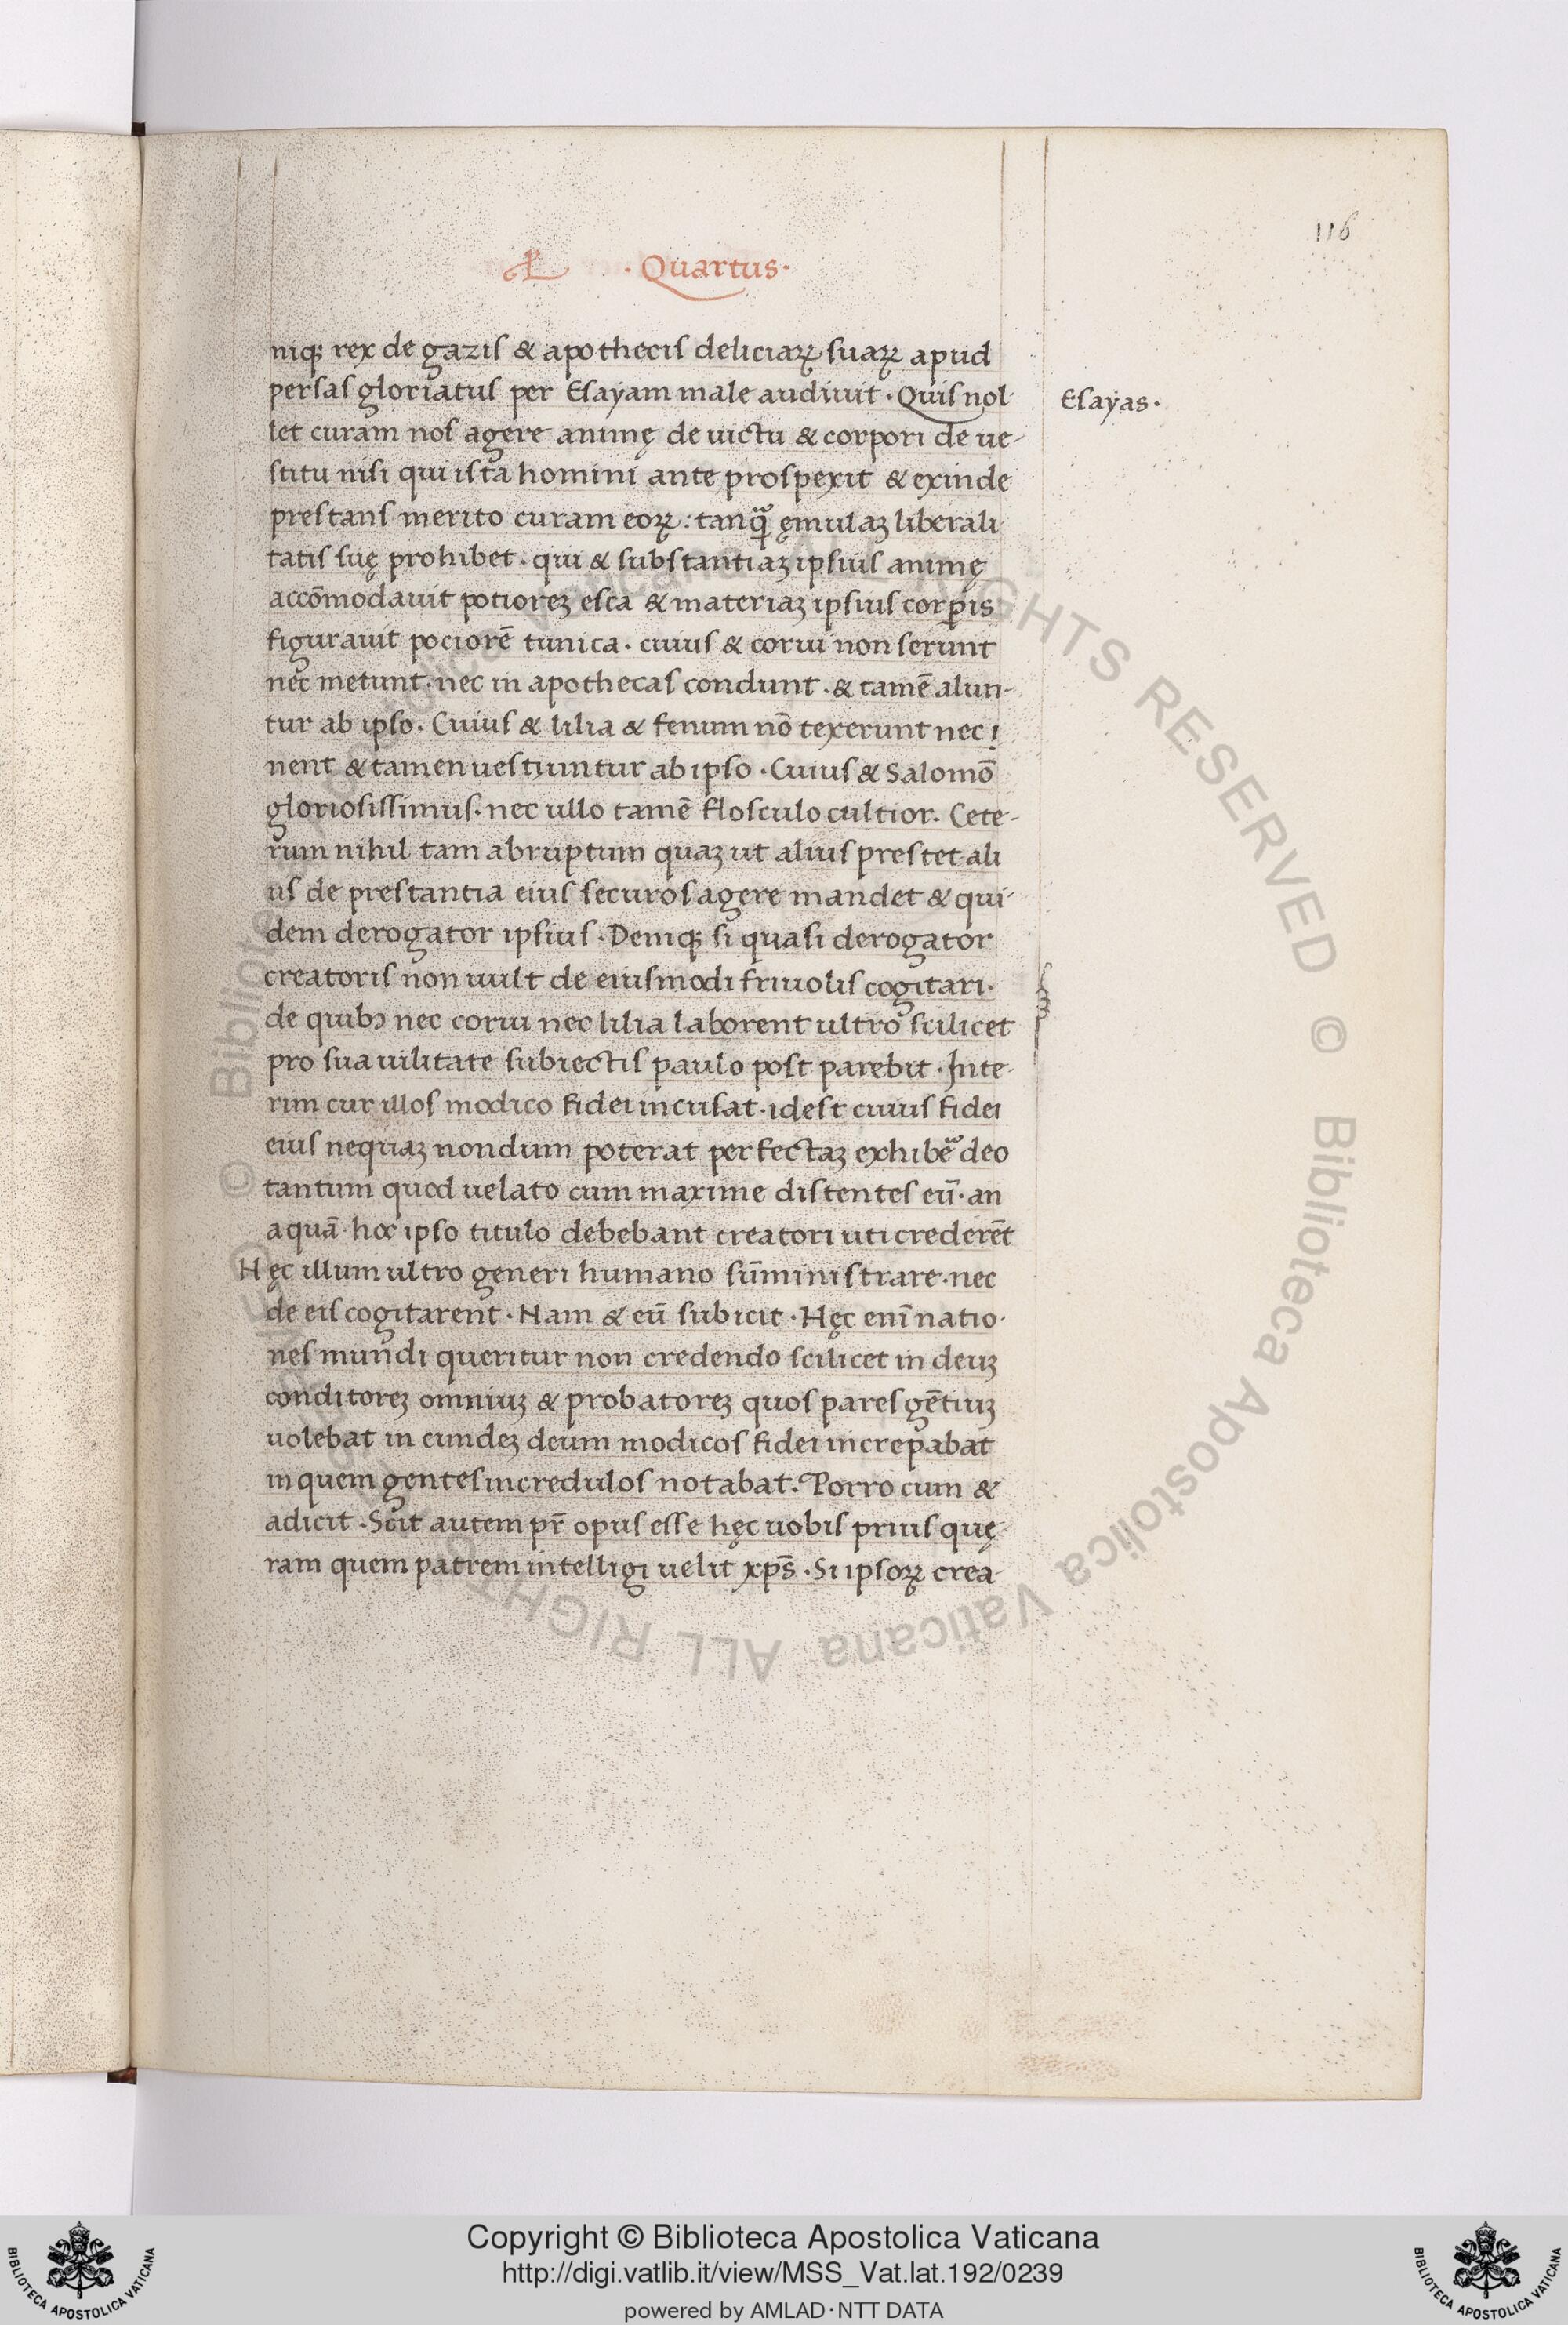 116
· Quartus ·
niq; rex de gazis & apothecis deliciaꝝ suaꝝ apud
persas gloriatus per Esayam male audiuit · Quis nol
Esayas ·
let curam nos agere animę de uictu & corpori de ue-
stitu nisi qui ista homini ante prospexit & exinde
prestans merito curam eoꝝ : tanqᷓ ęmulaʒ liberali
tatis suę prohibet . qui & substantiaʒ ipsius animę
accōmodauit potioreʒ esca & materiaʒ ipsius corꝑis
figurauit pociorē tunica . cuius & corui non serunt
nec metunt . nec in apothecas condunt . & tamē alun-
tur ab ipso . Cuius & lilia & fenum nō texerunt nec
nent & tamen uestiuntur ab ipso . Cuius & Salomō
gloriosissimus . nec ullo tamē flosculo cultior . Cete-
rum nihil tam abruptum quaʒ ut alius prestet ali
us de prestantia eius securos agere mandet & qui-
dem derogator ipsius . Deniq; si quasi derogator
creatoris non uult de eiusmodi friuolis cogitari .
de quibꝫ nec corui nec lilia laborent ultro scilicet
pro sua uilitate subiectis paulo post parebit . Inte-
rim cur illos modico fidei incusat . idest cuius fidei
eius nequaʒ nondum poterat perfectaʒ exhibeᷓ deo
tantum quod uelato cum maxime distentes eū . an
aquā . hoc ipso titulo debebant creatori uti crederēt
Hęc illum ultro generi humano sūministrare . nec
de eis cogitarent . Nam & eū subicit . Hęc enī natio-
nes mundi queritur non credendo scilicet in deuʒ
conditoreʒ omniuʒ & probatoreʒ quos pares gētiuʒ
uolebat in eundeʒ deum modicos fidei increpabat
in quem gentes incredulos notabat . Porro cum &
adicit . Scit autem pr̄ opus esse hęc uobis prius quę-
ram quem patrem intelligi uelit xp̄s . Si ipsoꝝ crea-
Copyright © Biblioteca Apostolica Vaticana
http://digi.vatlib.it/view/MSS_Vat.lat.192/0239
powered by AMLAD · NTT DATA
BIBLIOTECA APOSTOLICA VATICANA
BIBLIOTECA APOSTOLICA VATICANA
© Biblioteca Apostolica Vaticana ALL RIGHTS RESERVED © Biblioteca Apostolica Vaticana ALL RIGHTS RESERVED